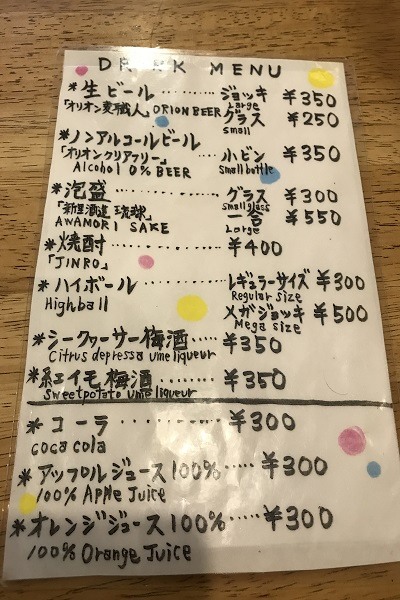 DRINK MENU
*生ビール ........ ジョッキ ¥350
Large
「オリオン麦職人」ORION BEER グラス ¥250
small
*ノンアルコールビール
「オリオンクリアフリー」 ...... 小ビン ¥350
Alcohol 0% BEER Small bottle
*泡盛 ............ グラス ¥300
small glass
「新里酒造 琉球」 一合 ¥550
AWAMORI SAKE Large
*焼酎 ............ ¥400
「JINRO」
*ハイボール ........ レギュラーサイズ ¥300
Regular size
Highball メガジョッキ ¥500
Mega size
*シークヮーサー梅酒 ...... ¥350
Citrus depressa ume liqueur
*紅イモ梅酒 ........ ¥350
Sweetpotato ume liqueur
*コーラ ............ ¥300
coca cola
*アップルジュース100% ..... ¥300
100% Apple Juice
*オレンジジュース100% ..... ¥300
100% Orange Juice